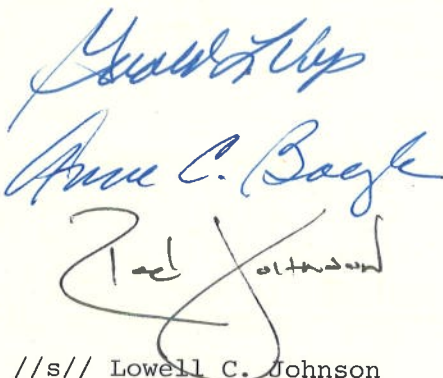 Anne C. Boyle
Rod Johnson
//s// Lowell C. Johnson